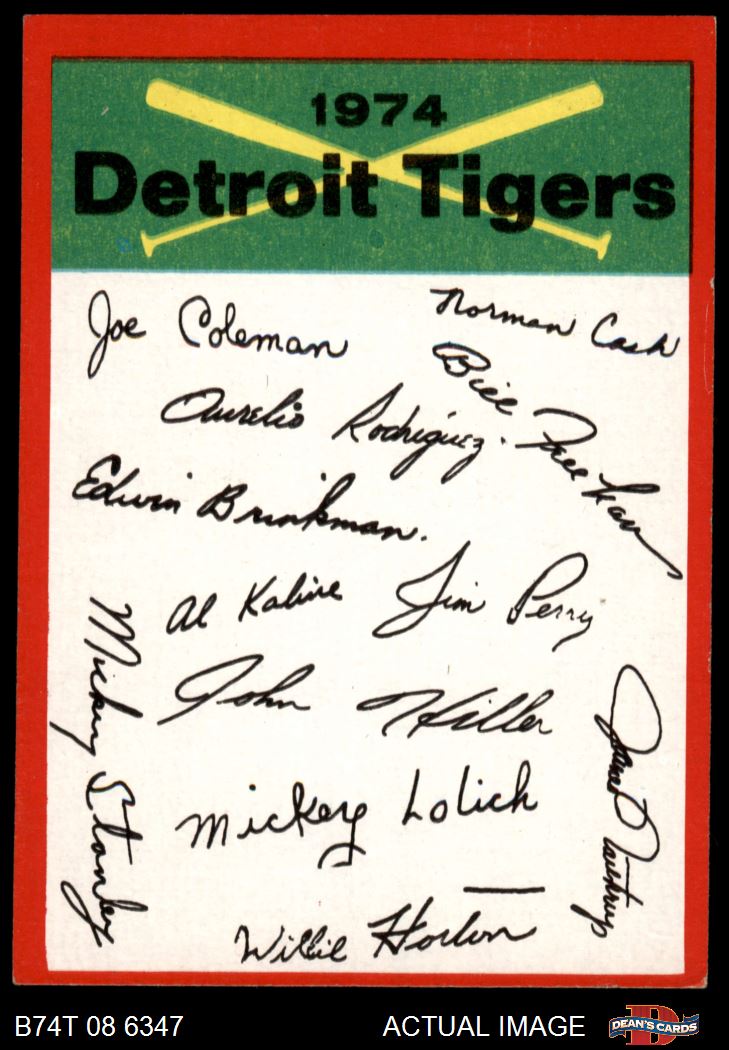 1974
Detroit Tigers
Joe Coleman
Norman Cash
Bill Freehan
Aurelio Rodriguez.
Edwin Brinkman.
Al Kaline
Jim Perry
Mickey Stanley
John Hiller
Mickey Lolich
Willie Horton
B74T 08 6347
ACTUAL IMAGE
DEAN'S CARDS